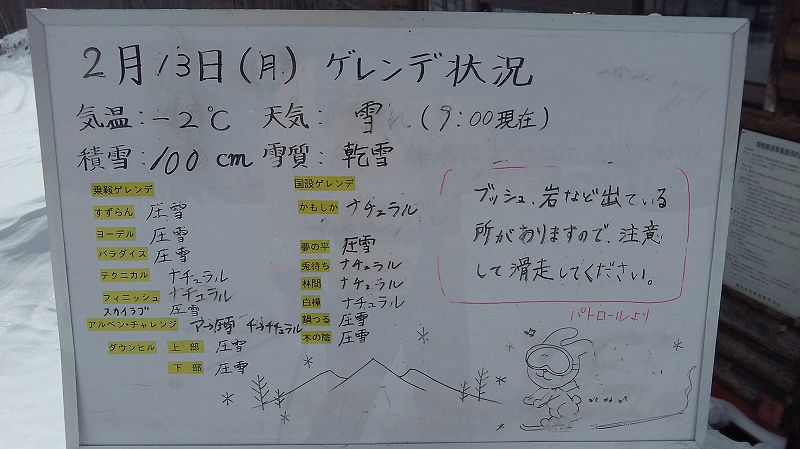 2月13日(月) ゲレンデ状況
気温:-2℃ 天気: 雪 (9:00現在)
積雪:100cm 雪質: 乾雪
乗鞍ゲレンデ
すずらん 圧雪
ヨーデル 圧雪
パラダイス 圧雪
テクニカル ナチュラル
フィニッシュ ナチュラル
スカイラブ 圧雪
アルペン・チャレンジ ア→圧雪 チ→ナチュラル
ダウンヒル 上部 圧雪
下部 圧雪
国設ゲレンデ
かもしか ナチュラル
夢の平 圧雪
兎待ち ナチュラル
林間 ナチュラル
白樺 ナチュラル
鍋つる 圧雪
木の陰 圧雪
ブッシュ、岩など出ている
所がありますので、注意
して滑走してください。
パトロールより